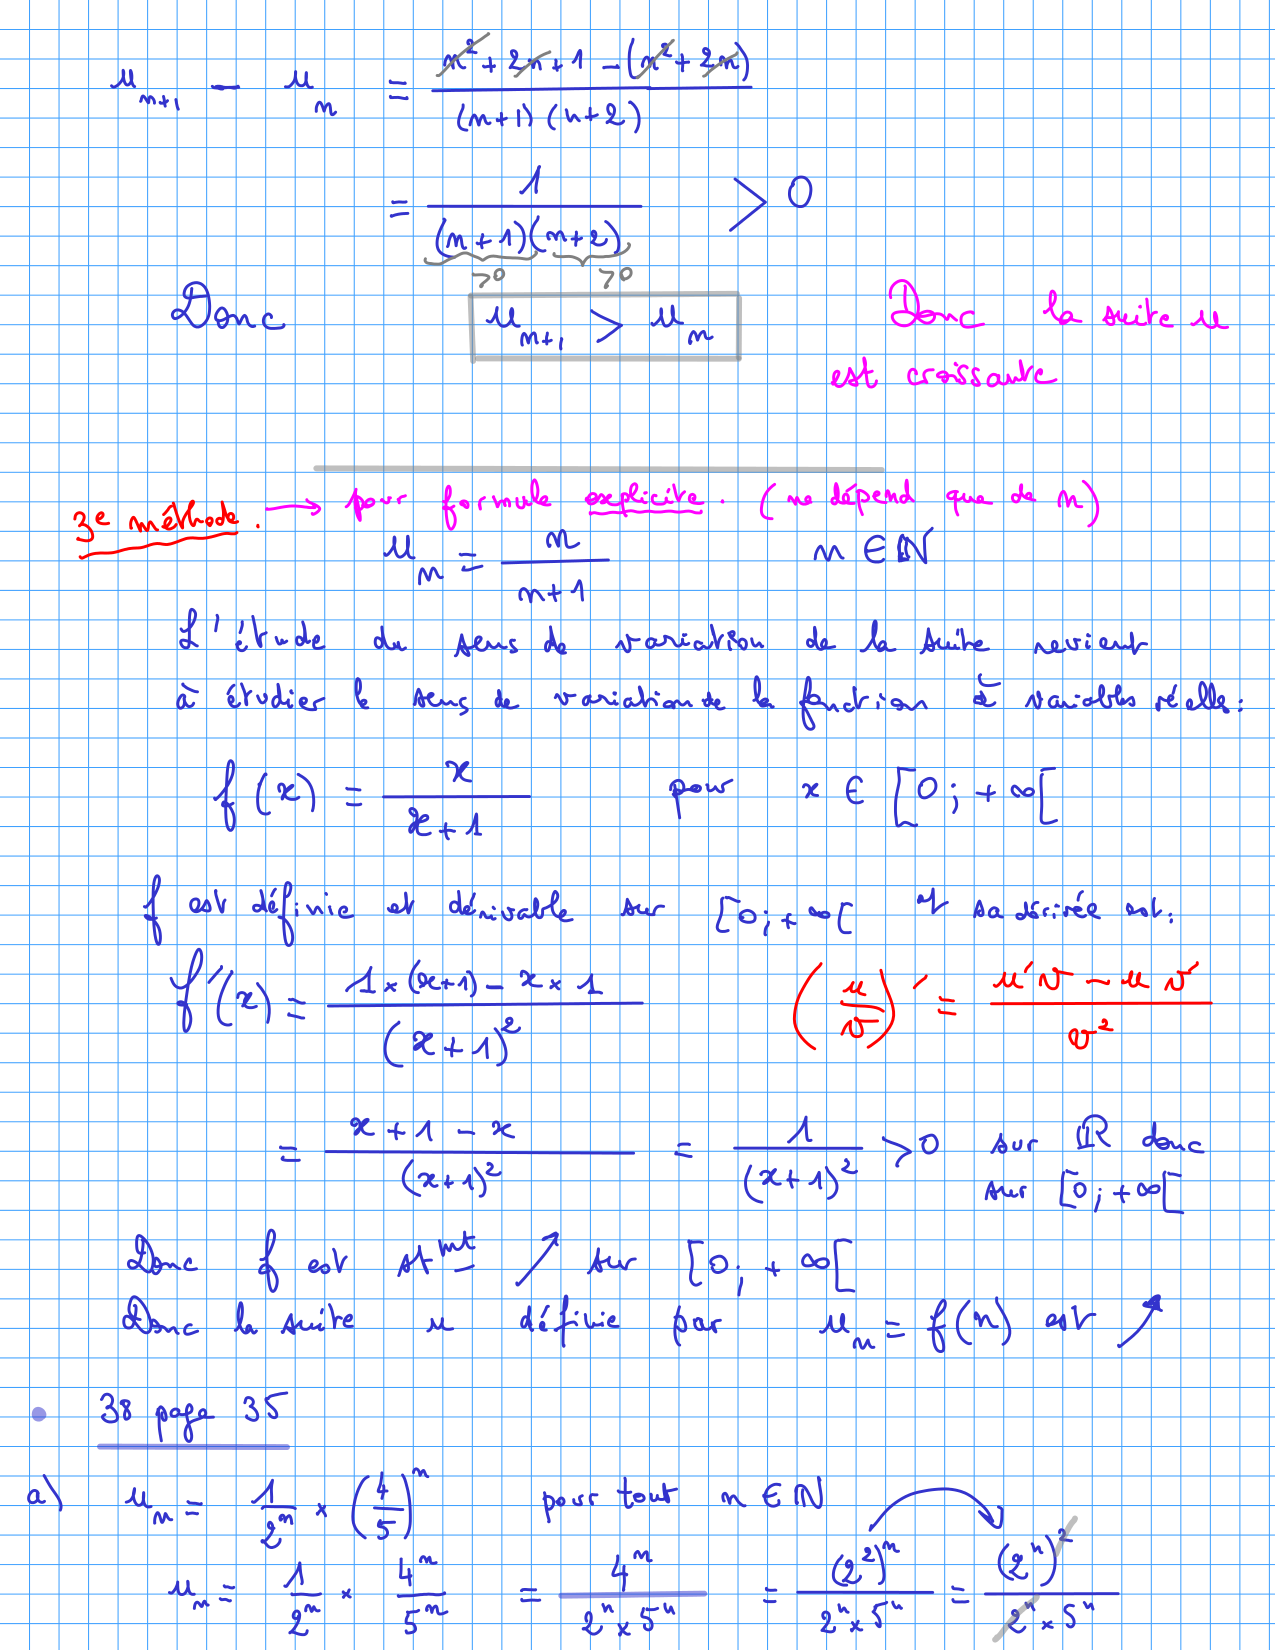 u_{n+1} - u_n = \frac{n^2 + 2n + 1 - (n^2 + 2n)}{(n+1)(n+2)}
= \frac{1}{(n+1)(n+2)} > 0
>0 >0
Donc u_{n+1} > u_n Donc la suite u
est croissante
3e méthode. → pour formule explicite. (ne dépend que de n)
u_n = \frac{n}{n+1} n ∈ ℕ
L'étude du sens de variation de la suite revient
à étudier le sens de variation de la fonction à variables réelles:
f(x) = \frac{x}{x+1} pour x ∈ [0; +∞[
f est définie et dérivable sur [0; +∞[ et sa dérivée est:
f'(x) = \frac{1×(x+1) - x×1}{(x+1)^2} (\frac{u}{v})' = \frac{u'v - uv'}{v^2}
= \frac{x+1-x}{(x+1)^2} = \frac{1}{(x+1)^2} > 0 sur ℝ donc
sur [0; +∞[
Donc f est st^{mt} ↗ sur [0; +∞[
Donc la suite u définie par u_n = f(n) est ↗
• 38 page 35
a) u_n = \frac{1}{2^n} × (\frac{4}{5})^n pour tout n ∈ ℕ
u_n = \frac{1}{2^n} × \frac{4^n}{5^n} = \frac{4^n}{2^n × 5^n} = \frac{(2^2)^n}{2^n × 5^n} = \frac{(2^n)^2}{2^n × 5^n}